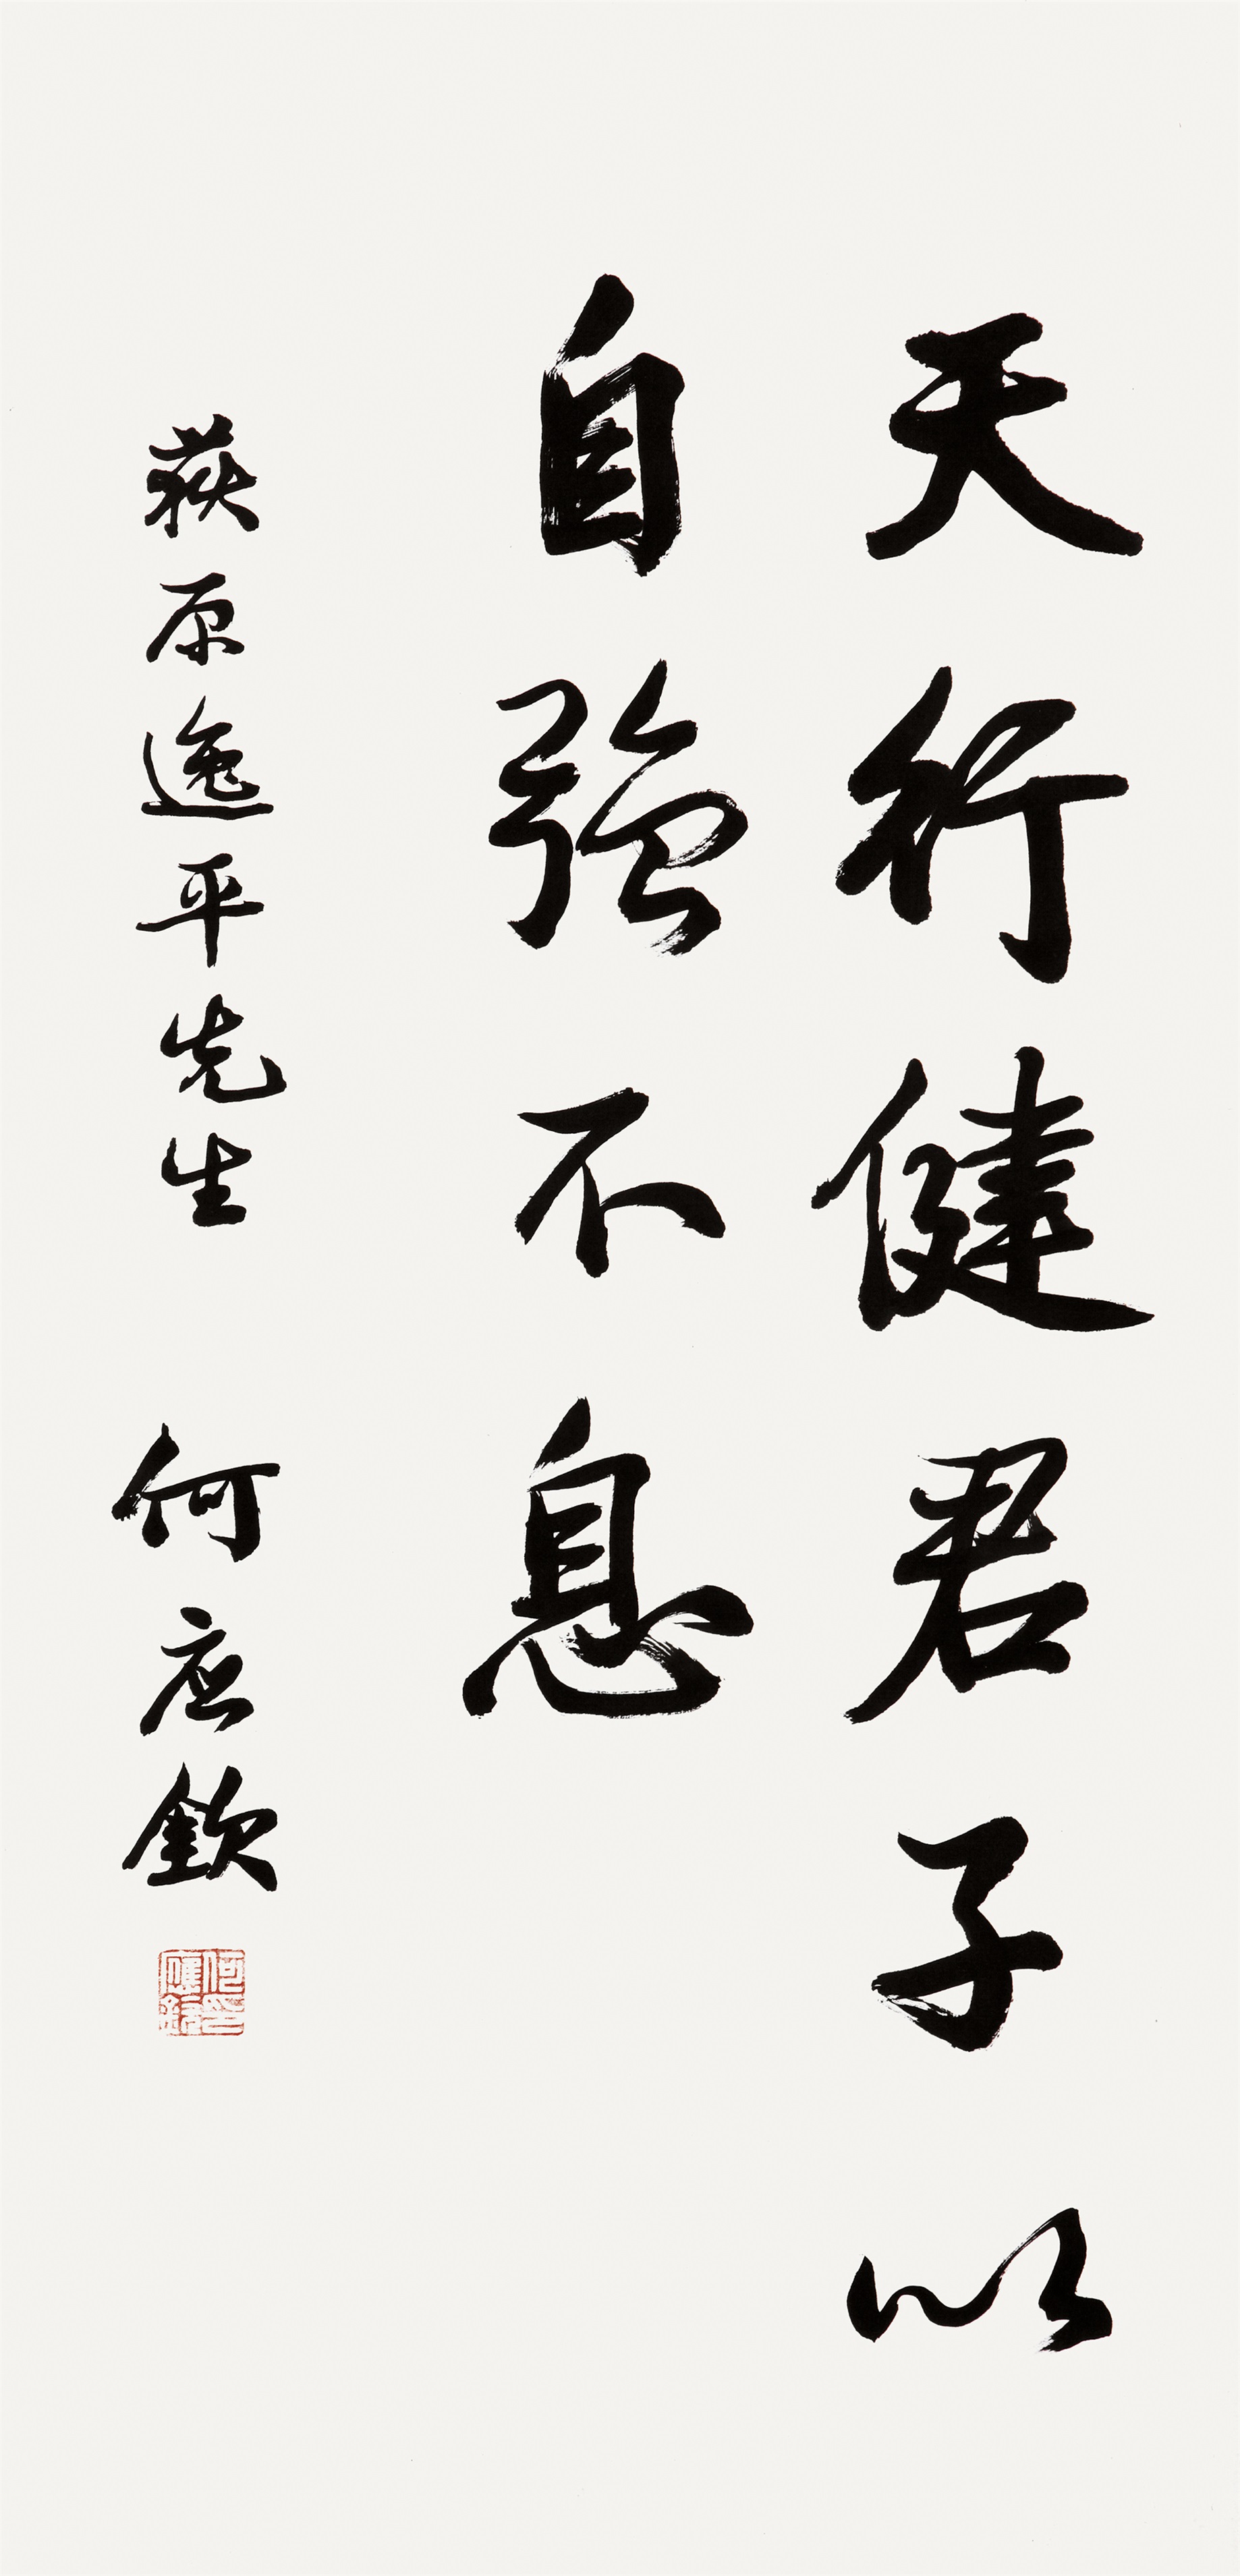 天行健君子以
自強不息
荻原逸平先生 何应欽
何應欽印